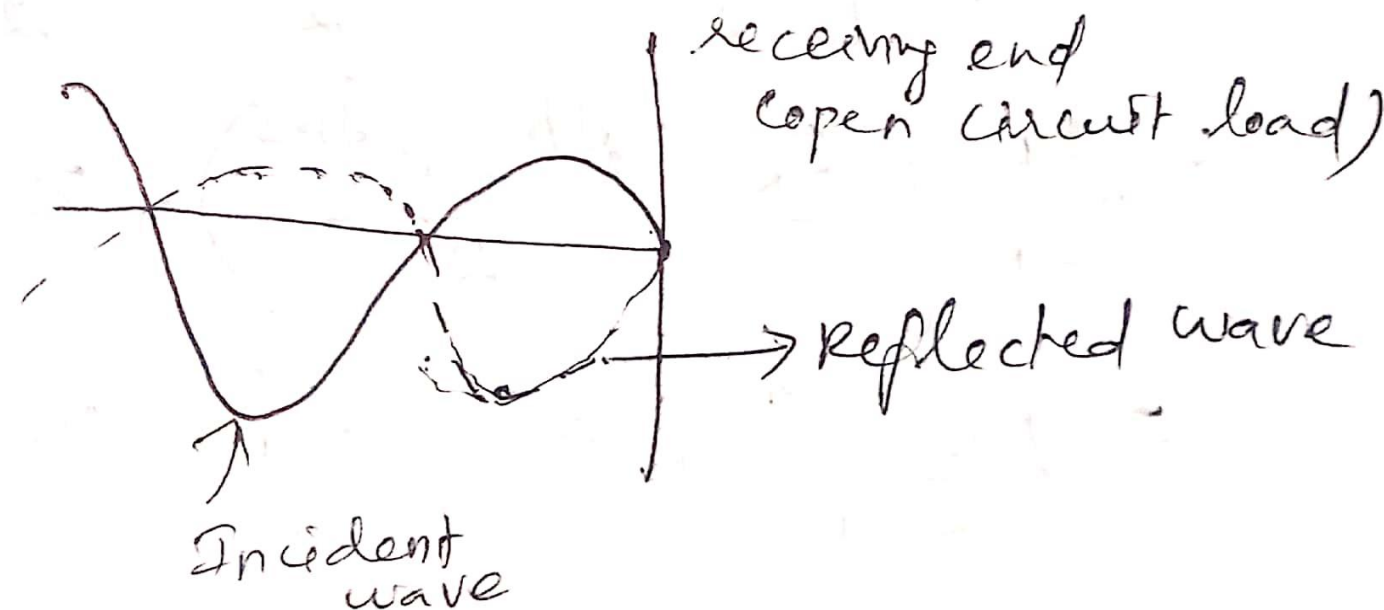 receiving end
(open circuit load)
Reflected wave
Incident
wave